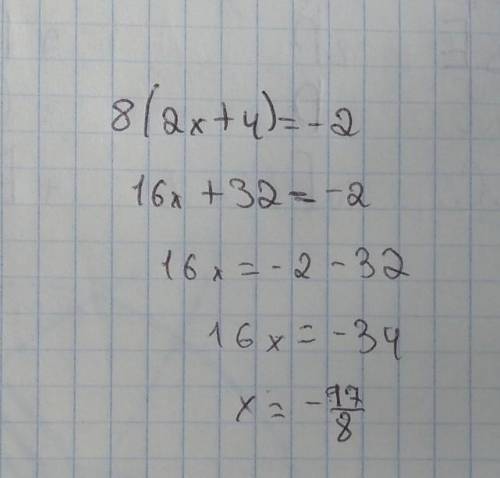 8(2x+4)=-2
16x+32=-2
16x=-2-32
16x=-34
x=-17/8